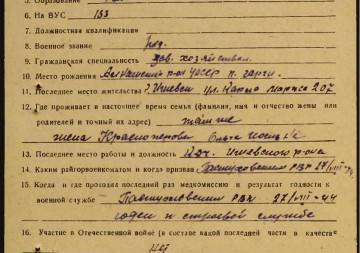 5. Образование
6. На ВУС 133
7. Должностная квалификация
8. Военное звание ряд.
9. Гражданская специальность зав. хозяйством
10. Место рождения р-он УАССР
11. Последнее место жительства г. Ижевск ул. Карла Маркса 207
12. Где проживает в настоящее время семья (фамилия, имя и отчество жены или
родителей и точный их адрес) там же
жена Красноперова
13. Последнее место работы и должность Ижевского р-на
14. Каким райгорвоенкоматом и когда призван РВК 27/VIII-44
15. Когда и где проходил последний раз медкомиссию и результат годности к
военной службе РВК 27/VIII-44
годен к строевой службе
16. Участие в Отечественной войне (в составе какой последней части и в качестве
нет